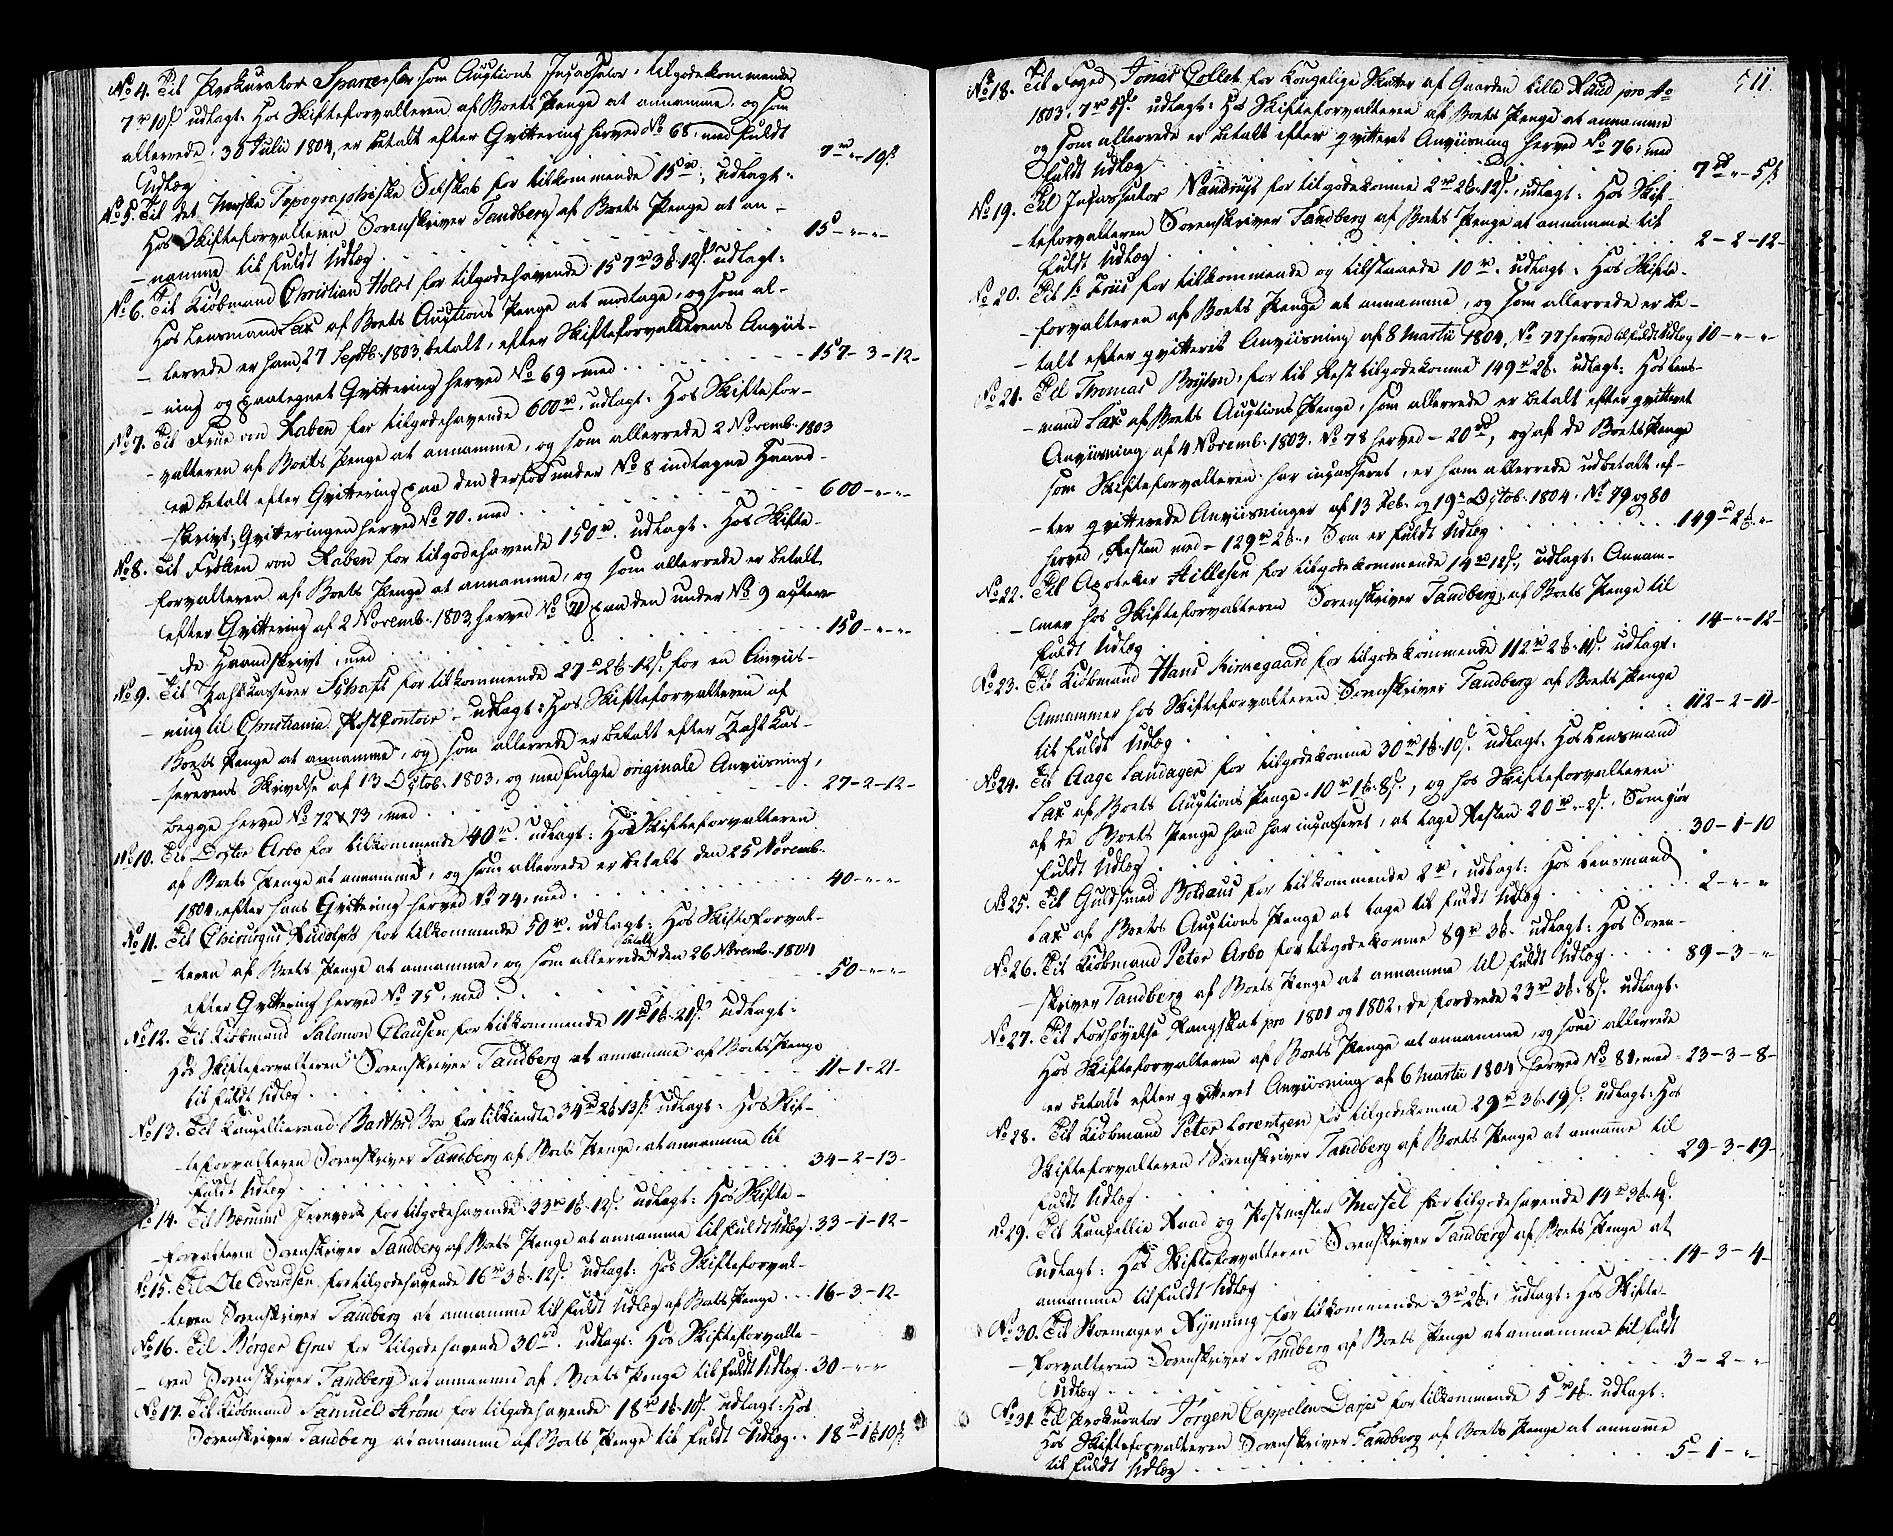 No 4. Til Prokurator Sparre for som Auctions Incassator, tilgodekommende
7 rd 10 s udlagt: Hos Skifteforvalteren af Boets Penge at annamme, og som
allerrede, 30 Julii 1804, er betalt efter Qvittering herved No 68, med fuldt
Udlæg . 7 rd - " - 10 s
No 5. Til det Norske Topographiske Selskab for tilkommende 15 rd, udlagt:
Hos Skifteforvalteren Sorenskriver Tandberg af Boets Penge at an-
namme til fuldt Udlæg . 15 - " - " -
No 6. Til Kiøbmand Christian Holst for tilgodehavende 157 rd 3 ort 12 s. udlagt:
Hos Lensmand Lax af Boets Auctions Penge at modtage, og som al-
lerrede er ham, 27 Septb. 1803, betalt, efter Skifteforvalterens Anviis-
ning og paategnet Qvittering herved No 69, med . 157 - 3 - 12 -
No 7. Til Frue von Raben for tilgodehavende 600 rd, udlagt: Hos Skiftefor-
valteren af Boets Penge at annamme, og som allerrede 2 Novemb. 1803
er betalt efter Qvittering paa den derfor under No 8 indtagne Haand-
skrivt, Qvitteringen herved No 70. med . 600 - " - " -
No 8. Til Frøken von Raben for tilgodehavende 150 rd. udlagt: Hos Skifte-
forvalteren af Boets Penge at annamme, og som allerrede er betalt
efter Qvittering af 2 Novemb. 1803, herved No 71 paa den under No 9 acterede
Haandskrivt, med . 150 - " - " -
No 9. Til Zahlkasserer Schafft for tilkommende 27 rd 2 ort 12 s. for en Anviis-
ning til Christiania Postcontoir - udlagt: Hos Skifteforvalteren af
Boets Penge at annamme, og som allerrede er betalt efter Zahlkas-
sererens Skrivelse af 13 Octob. 1803, og medfulgte originale Anviisning,
begge herved No 72 & 73, med . 27 - 2 - 12 -
No 10. Til Doctor Arbo for tilkommende 40 rd. udlagt: Hos Skifteforvalteren
af Boets Penge at annamme, og som allerrede er betalt den 25 Novemb.
1804, efter hans Qvittering herved No 74, med . 40 - " - " -
No 11. Til Chirurgus Rudolph for tilkommende 50 rd. udlagt: Hos Skifteforval-
teren af Boets Penge at annamme, og som allerrede betalt den 26 Novemb. 1804
efter Qvittering herved No 75, med . 50 - " - " -
No 12. Til Kiøbmand Salomon Clausen for tilkommende 11 rd 1 ort 21 s. udlagt:
Hos Skifteforvalteren Sorenskriver Tandberg at annamme af Boets Penge
til fuldt Udlæg . 11 - 1 - 21 -
No 13. Til Cancellieraad Barth for tilkiendte 34 rd 2 ort 13 s. udlagt: Hos Skif-
teforvalteren Sorenskriver Tandberg af Boets Penge, at annamme til
fuldt Udlæg . 34 - 2 - 13 -
No 14. Til Bærums Jernværk for tilgodehavende 33 rd 1 ort 12 s. udlagt: Hos Skifte-
forvalteren Sorenskriver Tandberg af Boets Penge at annamme til fuldt Udlæg . 33 - 1 - 12 -
No 15. Til Ole Edvardsen for tilgodehavende 16 rd 3 ort 12 s. udlagt: Hos Skifteforval-
teren Sorenskriver Tandberg at annamme til fuldt Udlæg af Boets Penge . 16 - 3 - 12 -
No 16. Til Børger Grav for tilgodehavend 30 rd. udlagt: Hos Skifteforvalte-
ren Sorenskriver Tandberg at annamme af Boets Penge til fuldt Udlæg . 30 - " - "
No 17. Til Kiøbmand Samuel Strøm for tilgodehavende 18 rd 1 ort 10 s. udlagt: Hos
Sorenskriver Tandberg at annamme af Boets Penge til fuldt Udlæg . 18 rd 1 ort 10 s
511.
No 18. Til Foged Jonas Collet for Kongelige Skatter af Gaarden lille Raud pro Ao
1803, 7 rd 5 s. udlagt: Hos Skifteforvalteren af Boets Penge at annamme
og som allerrede er betalt efter qvitteret Anviisning herved No 76, med
fuldt Udlæg . 7 rd - " - 5 s
No 19. Til Incassator Nandrup for tilgodekomne 2 rd 2 ort 12 s. udlagt: Hos Skif-
teforvalteren Sorenskriver Tandberg af Boets Penge at annamme til
fuldt Udlæg . 2 - 2 - 12 -
No 20. Til Sr Friis for tilkommende og tilstaaede 10 rd. udlagt: Hos Skifte-
forvalteren af Boets Penge at annamme, og som allerrede er be-
talt efter qvitteret Anviisning af 8 Martii 1804, No 77 herved til fuldt Udlæg 10 - " - "
No 21. Til Thomas Bryhn, for til Rest tilgodekomne 149 rd 2 ort. udlagt: Hos Lens-
mand Lax af Boets Auctions Penge, som allerrede er betalt efter qvitteret
Anviisning af 4 Novemb. 1803. No 78 herved - 20 rd, og af de Boets Penge
som Skifteforvalteren har incasseret, er ham allerrede udbetalt ef-
ter qvitterede Anviisninger af 13 Feb. og 19 Octob. 1804. No 79 og 80
herved, Resten med - 129 rd 2 ort., Som er fuldt Udlæg . 149 rd 2 ort "
No 22. Til Apoteker Hillesen for tilgodekommende 14 rd 12 s., udlagt: Annam-
mer hos Skifteforvalteren Sorenskriver Tandberg, af Boets Penge til
fuldt Udlæg . 14 - " - 12 -
No 23. Til Kiøbmand Hans Kirnegaard for tilgodekommende 112 rd 2 ort 11 s. udlagt:
Annammer hos Skifteforvalteren Sorenskriver Tandberg af Boets Penge
til fuldt Udlæg . 112 - 2 - 11 -
No 24. Til Aage Sandager for tilgodekomne 30 rd 1 ort 10 s. udlagt: Hos Lensmand
Lax af Boets Auctions Penge - 10 rd 1 ort 8 s., og hos Skifteforvalteren
af de Boets Penge han har incasseret, at tage Resten 20 rd - 2 s. Som giør
fuldt Udlæg . 30 - 1 - 10
No 25. Til Guldsmed Boldaus for tilkommende 2 rd, udlagt: Hos Lensmand
Lax af Boets Auctions Penge at tage til fuldt Udlæg . 2 - " - "
No 26. Til Kiøbmand Peter Arbo for tilgodekomne 89 rd 3 ort. udlagt: Hos Soren-
skriver Tandberg af Boets Penge at annamme til fuldt Udlæg . 89 - 3 - "
No 27. Til Forhøyelse Rangskat pro 1801 og 1802, de fordrede 23 rd 3 ort 8 s. udlagt:
Hos Skifteforvalteren af Boets Penge at annamme, og som allerrede
er betalt efter qvitteret Anviisning af 6 Martii 1804, herved No 81, med 23 - 3 - 8 -
No 28. Til Kiøbmand Peter Lorentzen for tilgodekomne 29 rd 3 ort 19 s. udlagt: Hos
Skifteforvalteren Sorenskriver Tandberg af Boets Penge at annamme til
fuldt Udlæg . 29 - 3 - 19 -
No 29. Til Cancellie Raad og Postmester Meisel for tilgodehavende 14 rd 3 ort 4 s.
udlagt: Hos Skifteforvalteren Sorenskriver Tandberg af Boets Penge at
annamme til fuldt Udlæg . 14 - 3 - 4 -
No 30. Til Skoemager Rynning for tilkommende 3 rd 2 ort, udlagt: Hos Skifte-
forvalteren Sorenskriver Tandberg af Boets Penge at annamme til fuldt
Udlæg . 3 - 2 - "
No 31. Til Prokurator Jørgen Cappelen Darjes for tilkommende 5 rd 1 ort. udlagt:
Hos Skifteforvalteren Sorenskriver Tandberg af Boets Penge at annamme
til fuldt Udlæg . 5 - 1 - "